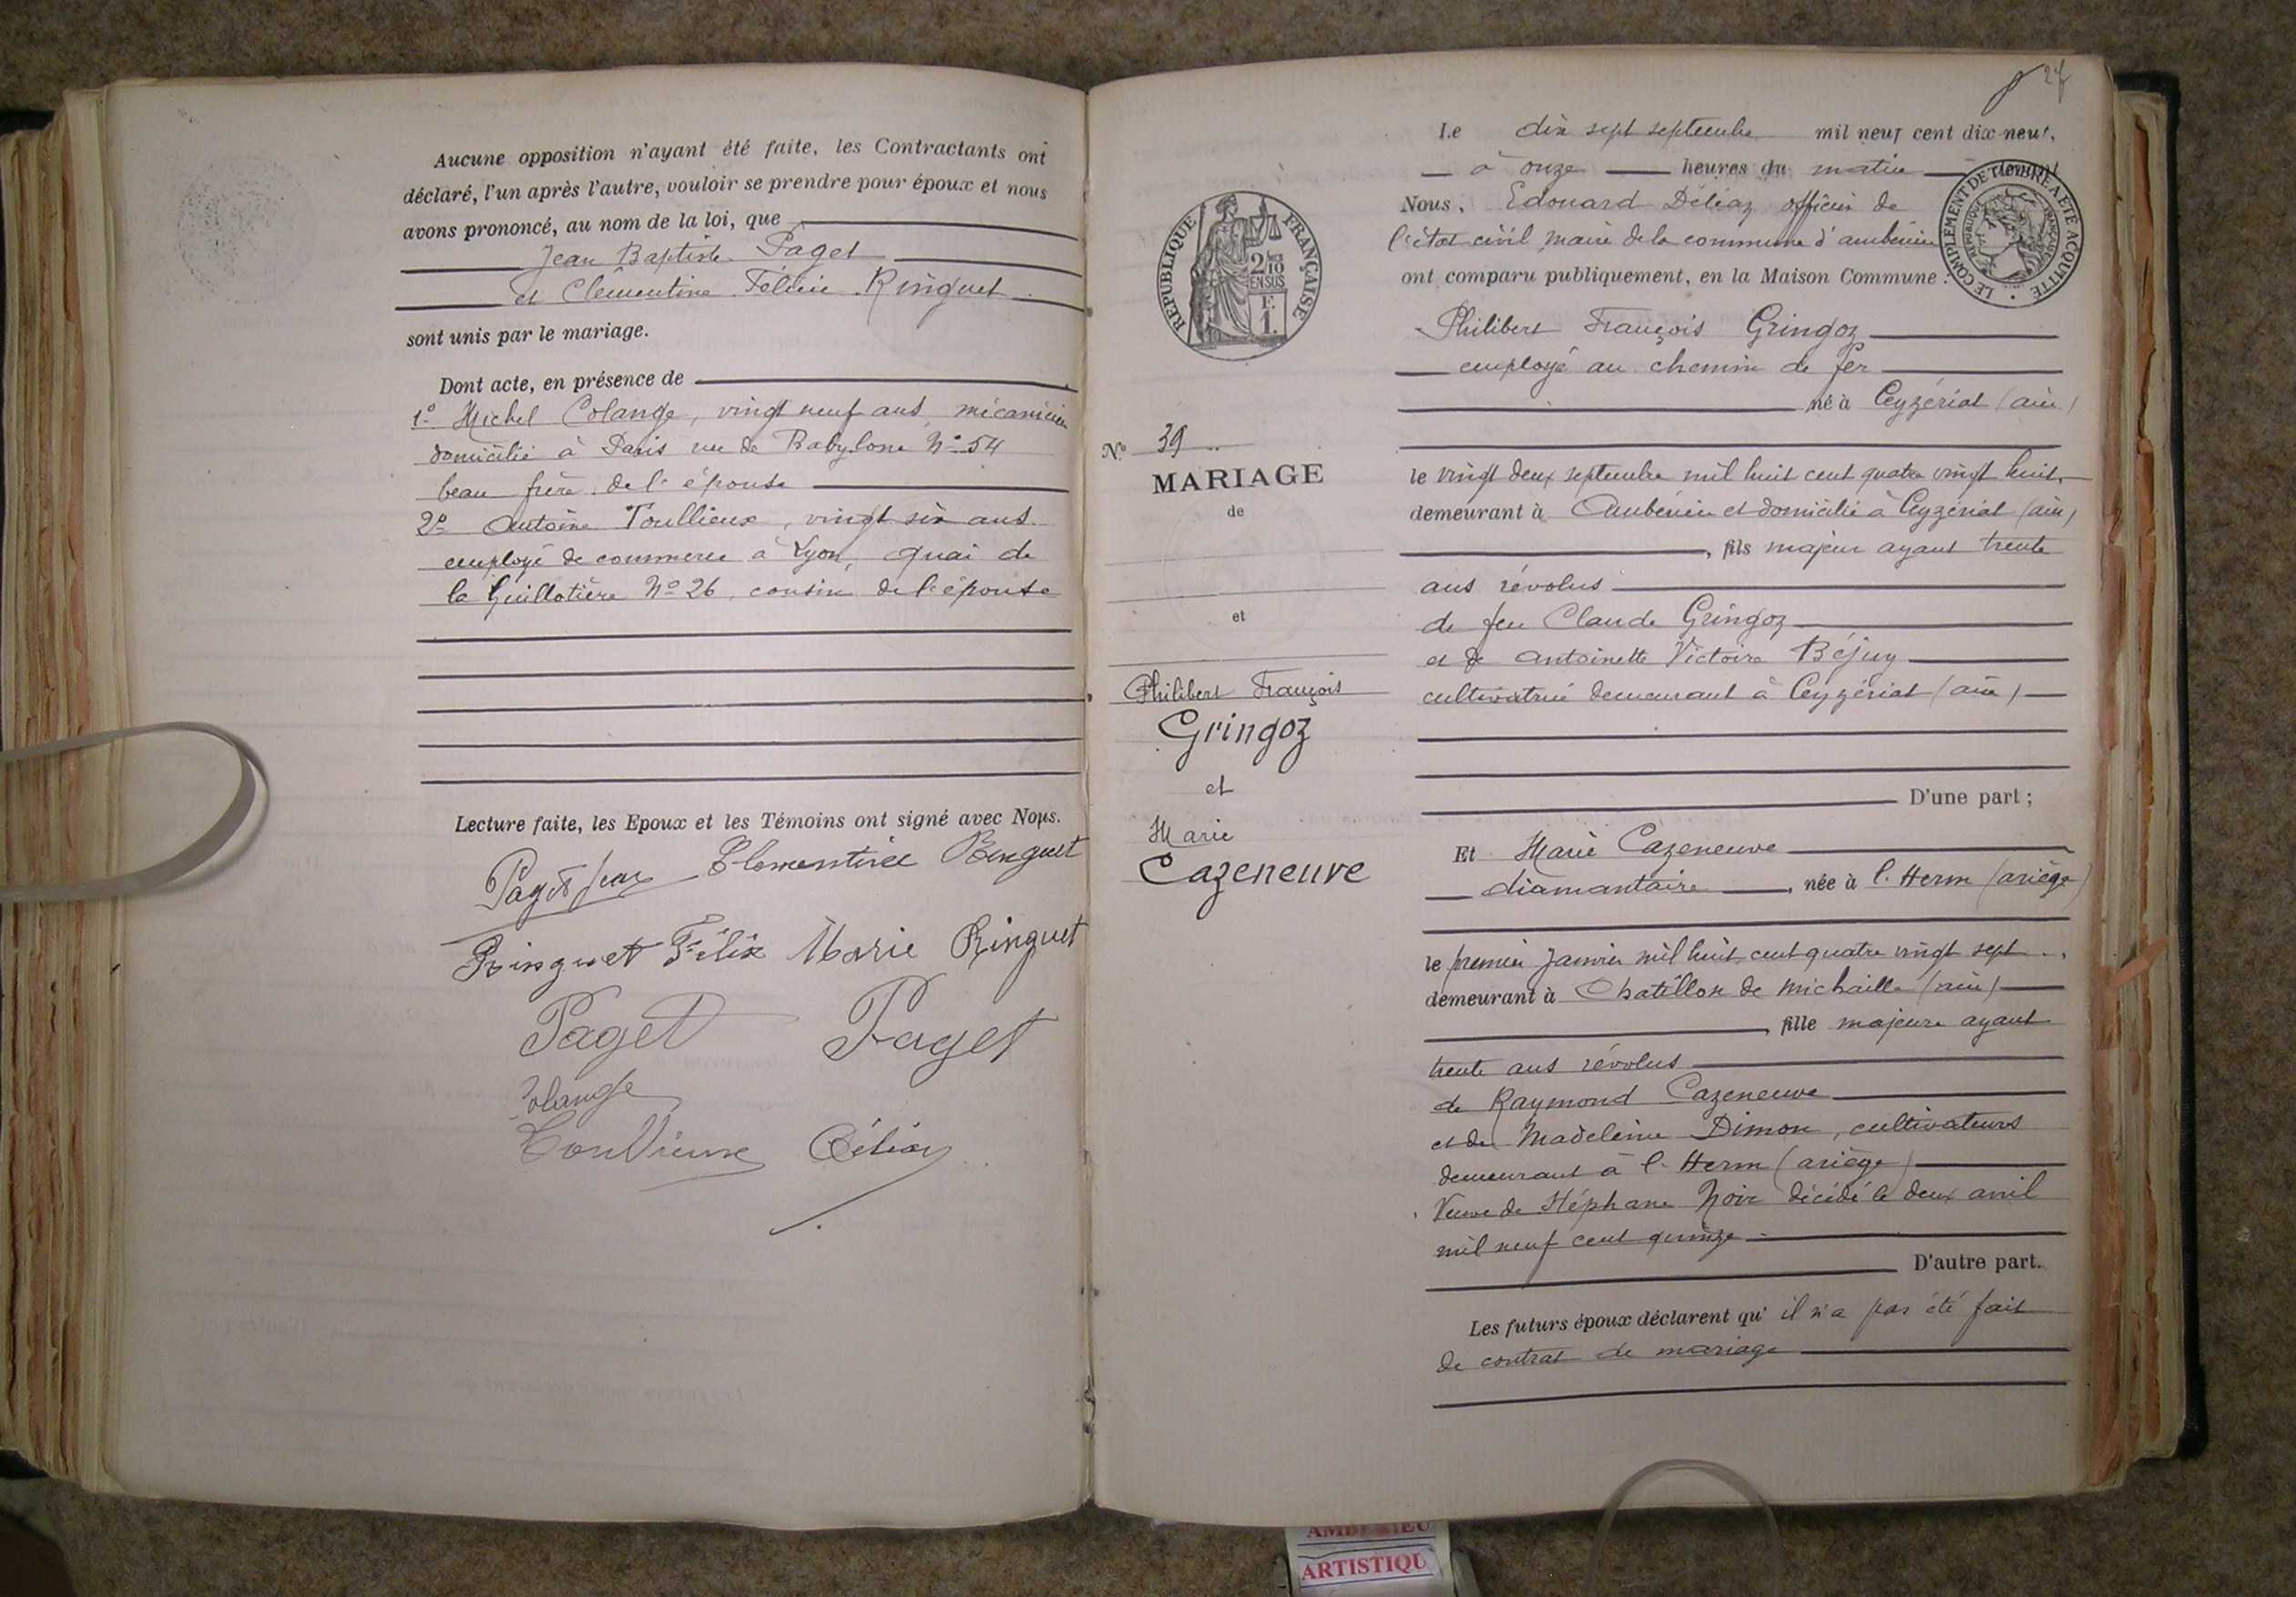 Aucune opposition n'ayant été faite, les Contractants ont
déclaré, l'un après l'autre, vouloir se prendre pour époux et nous
avons prononcé, au nom de la loi, que
Jean Baptiste Paget
et Clémentine Félicie Ringuet
sont unis par le mariage.
Dont acte, en présence de
1º Michel Colange, vingt neuf ans, mécanicien
domicilié à Paris rue de Babylone Nº 54
beau frère de l'épouse
2º Antoine Toullieux, vingt six ans
employé de commerce à Lyon, quai de
la Guillotière Nº 26, cousin de l'épouse
Lecture faite, les Epoux et les Témoins ont signé avec Nous.
Paget Jean Clementine Ringuet
Ringuet Félix Marie Ringuet
Paget Paget
Colange
Toullieux Déliaz
Nº 39
MARIAGE
de
et
Philibert François
Gringoz
et
Marie
Cazeneuve
REPUBLIQUE FRANÇAISE
2/10
EN SUS
F.
1.
27
Le dix sept septembre mil neuf cent dix-neuf,
à onze heures du matin devant
Nous, Edouard Déliaz officier de
l'état civil maire de la commune d'ambérieu
LE COMPLEMENT DE TIMBRE A ETE ACQUITTE
REPUBLIQUE FRANÇAISE
ont comparu publiquement, en la Maison Commune :
Philibert François Gringoz
employé au chemin de fer
né à Ceyzériat (ain)
le vingt deux septembre mil huit cent quatre vingt huit
demeurant à Ambérieu et domicilié à Ceyzériat (ain)
, fils majeur ayant trente
ans révolus
de feu Claude Gringoz
et de Antoinette Victoire Béjuy
cultivatrice demeurant à Ceyzériat (ain)
D'une part ;
Et Marie Cazeneuve
diamantaire , née à l'Herm (ariège)
le premier Janvier mil huit cent quatre vingt sept
demeurant à Chatillon de Michaille (ain)
, fille majeure ayant
trente ans révolus
de Raymond Cazeneuve
et de Madeleine Dimon, cultivateurs
demeurant à l'Herm (ariège)
Veuve de Stéphane Noir décédé le deux avril
mil neuf cent quinze
D'autre part.
Les futurs époux déclarent qu'il n'a pas été fait
de contrat de mariage
ARTISTIQU